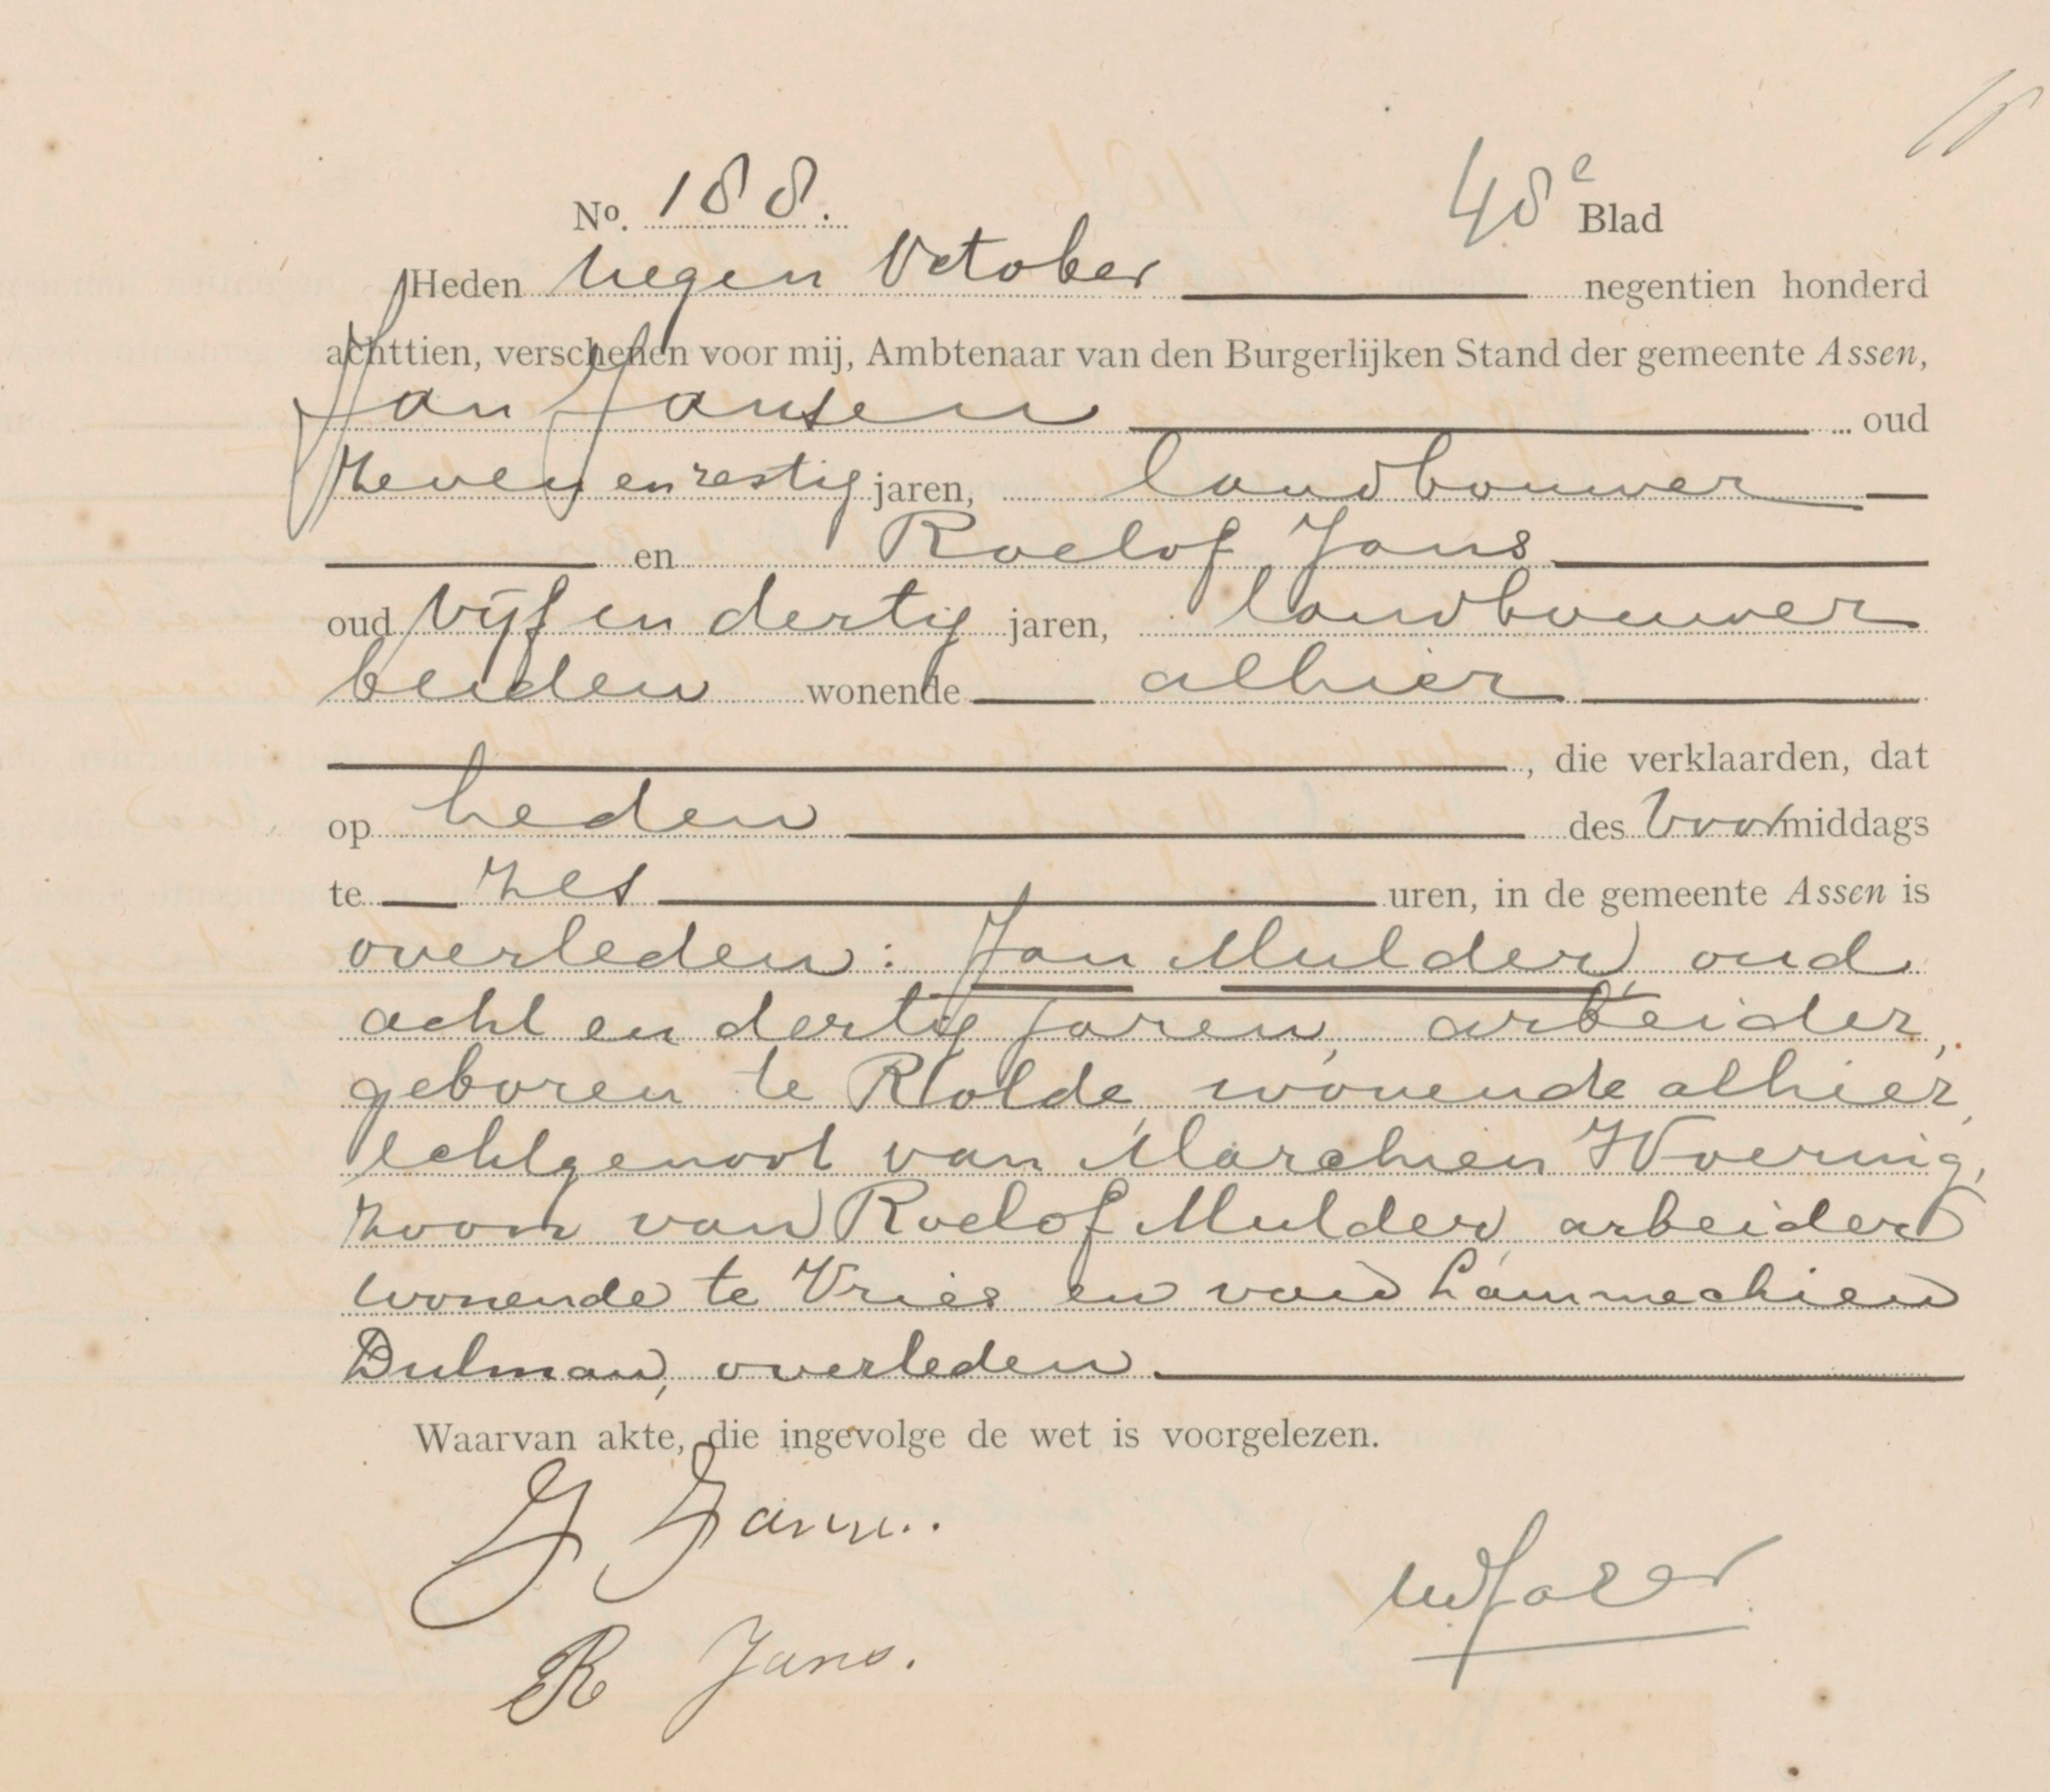 No. 188. 48e Blad
Heden negen October negentien honderd
achttien, verschenen voor mij, Ambtenaar van den Burgerlijken Stand der gemeente Assen,
Jan Jansen oud
zeven en zestig jaren, landbouwer
en Roelof Jans
oud vijf en dertig jaren, landbouwer
beiden wonende alhier
, die verklaarden, dat
op heden des voormiddags
te zes uren, in de gemeente Assen is
overleden: Jan Mulder, oud
acht en dertig jaren, arbeider,
geboren te Rolde, wonende alhier,
echtgenoot van Marchien Woering,
zoon van Roelof Mulder, arbeider
wonende te Vries en van Lammechien
Dulman, overleden.
Waarvan akte, die ingevolge de wet is voorgelezen.
J
R Jans.